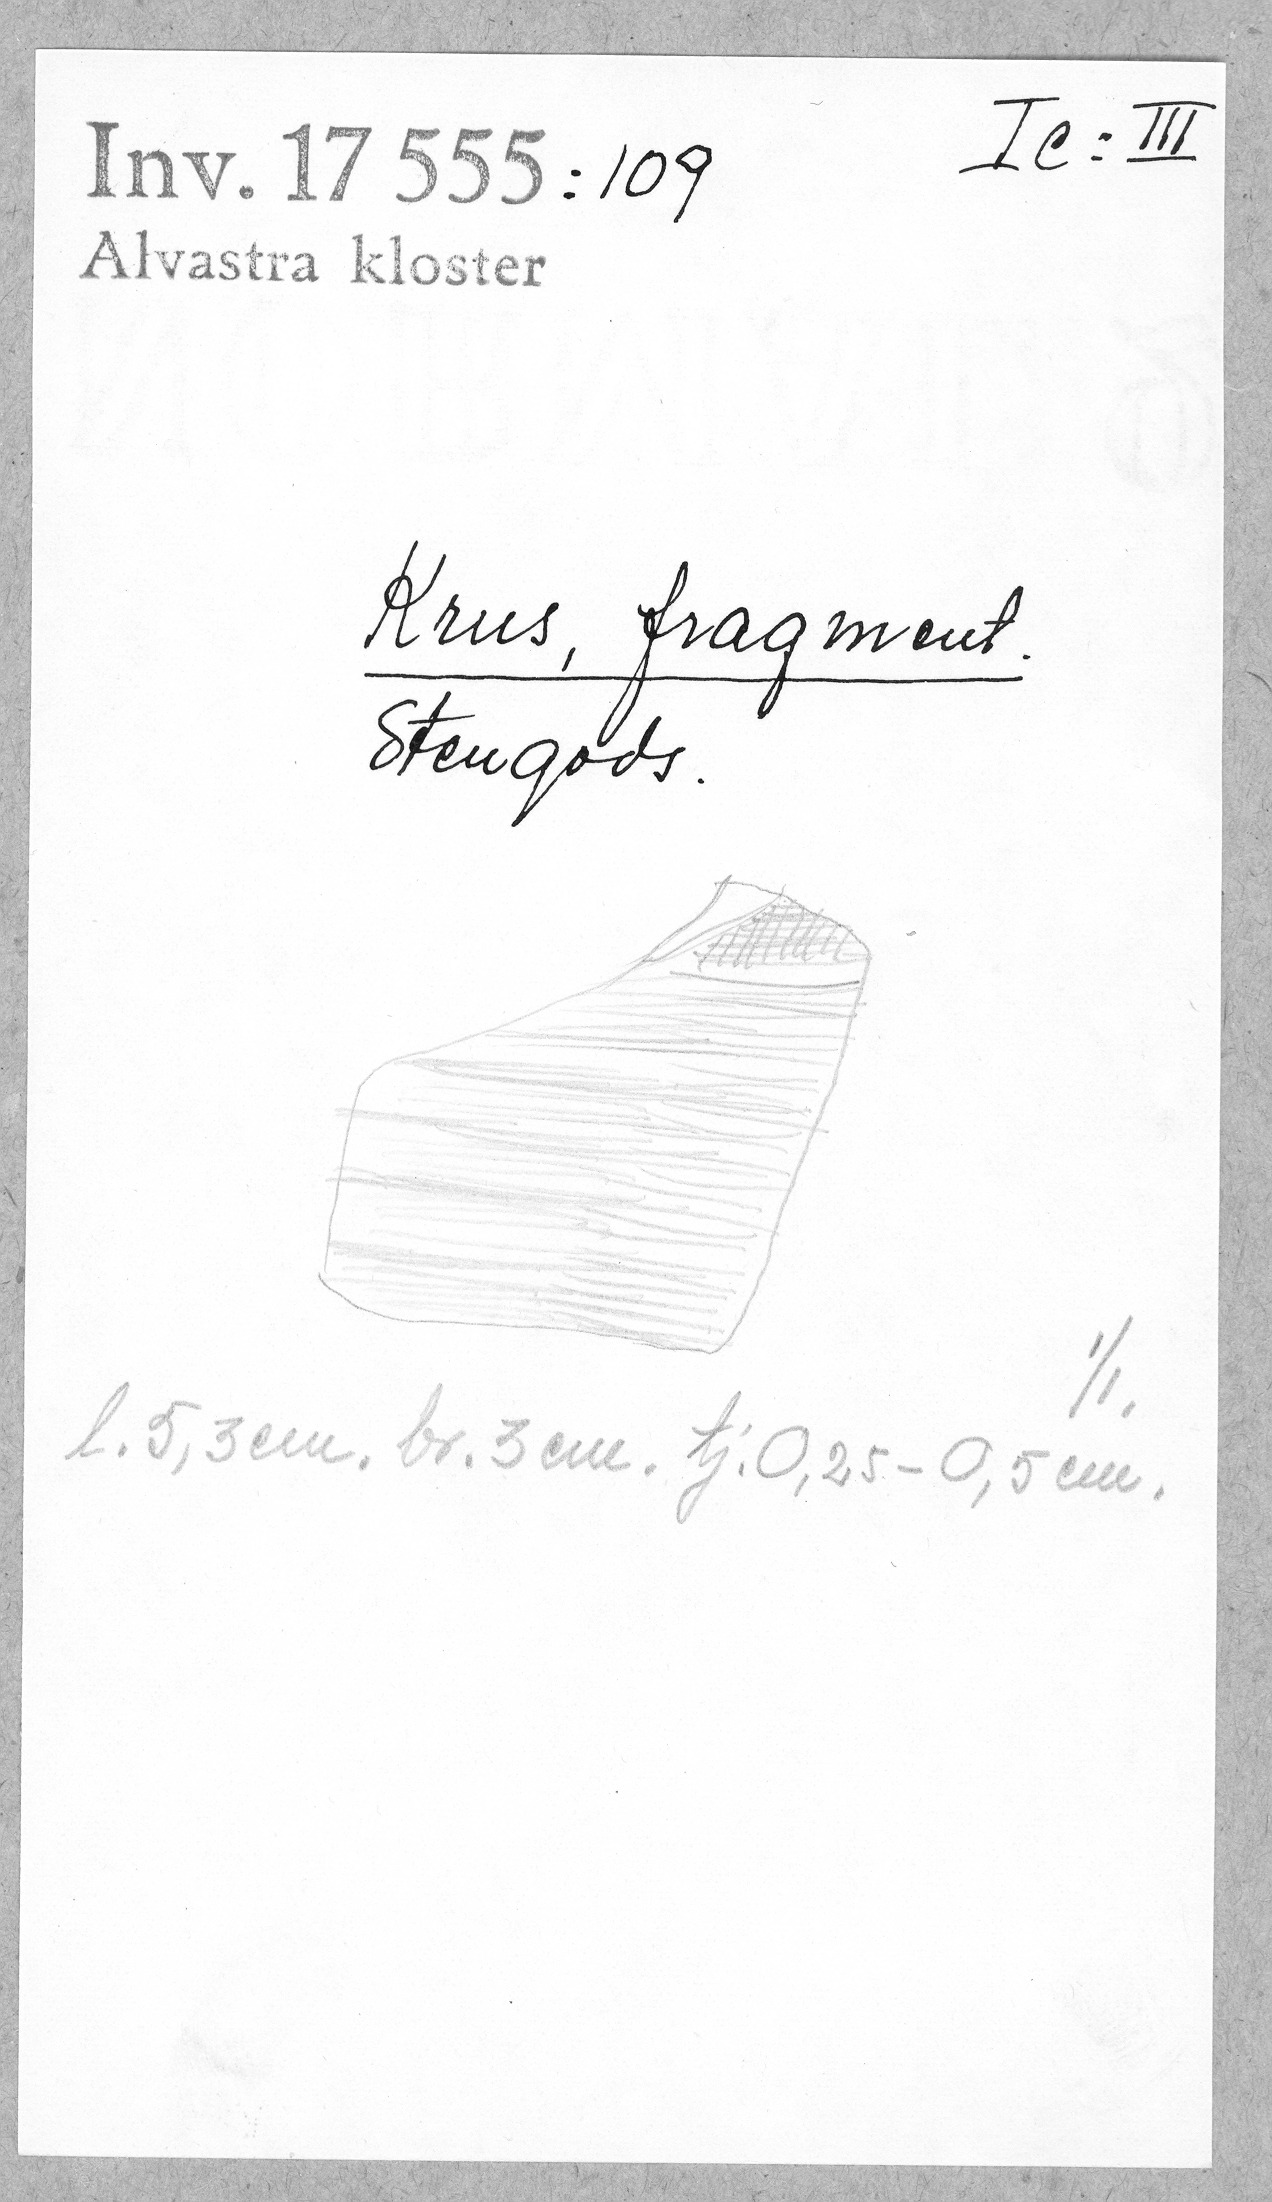 Inv. 17 555:109
Ic:III
Alvastra kloster
Krus, fragment.
Stengods.
1/1.
l. 5,3 cm. br. 3 cm. tj. 0,25-0,5 cm.